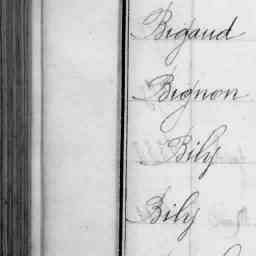 Bigaud
Bignon
Bily
Bily